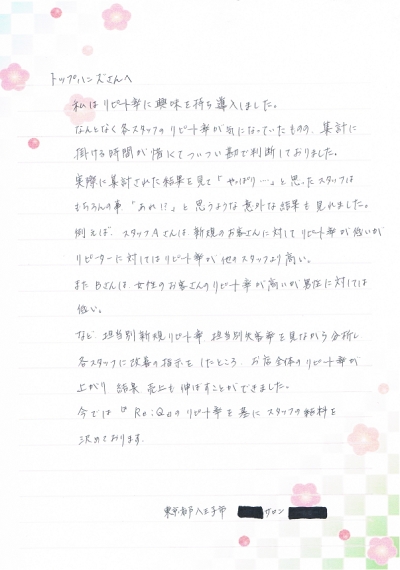 トップハンズさんへ
私はリピート率に興味を持ち導入しました。
なんとなく各スタッフのリピート率が気になっていたものの、集計に
掛ける時間が惜くてついつい勘で判断しておりました。
実際に集計された結果を見て「やっぱり…」と思ったスタッフは
もちろんの事「あれ!?」と思うような意外な結果も見れました。
例えば、スタッフAさんは、新規のお客さんに対してリピート率が低いが
リピーターに対してはリピート率が他のスタッフより高い。
またBさんは、女性のお客さんのリピート率が高いが男性に対しては
低い。
など、担当別新規リピート率、担当別失客率を見ながら分析し
各スタッフに改善の指示をしたところ、お店全体のリピート率が
上がり、結果、売上も伸ばすことができました。
今では『Re:Qoのリピート率を基にスタッフの給料を
決めております.
東京都八王子市 サロン